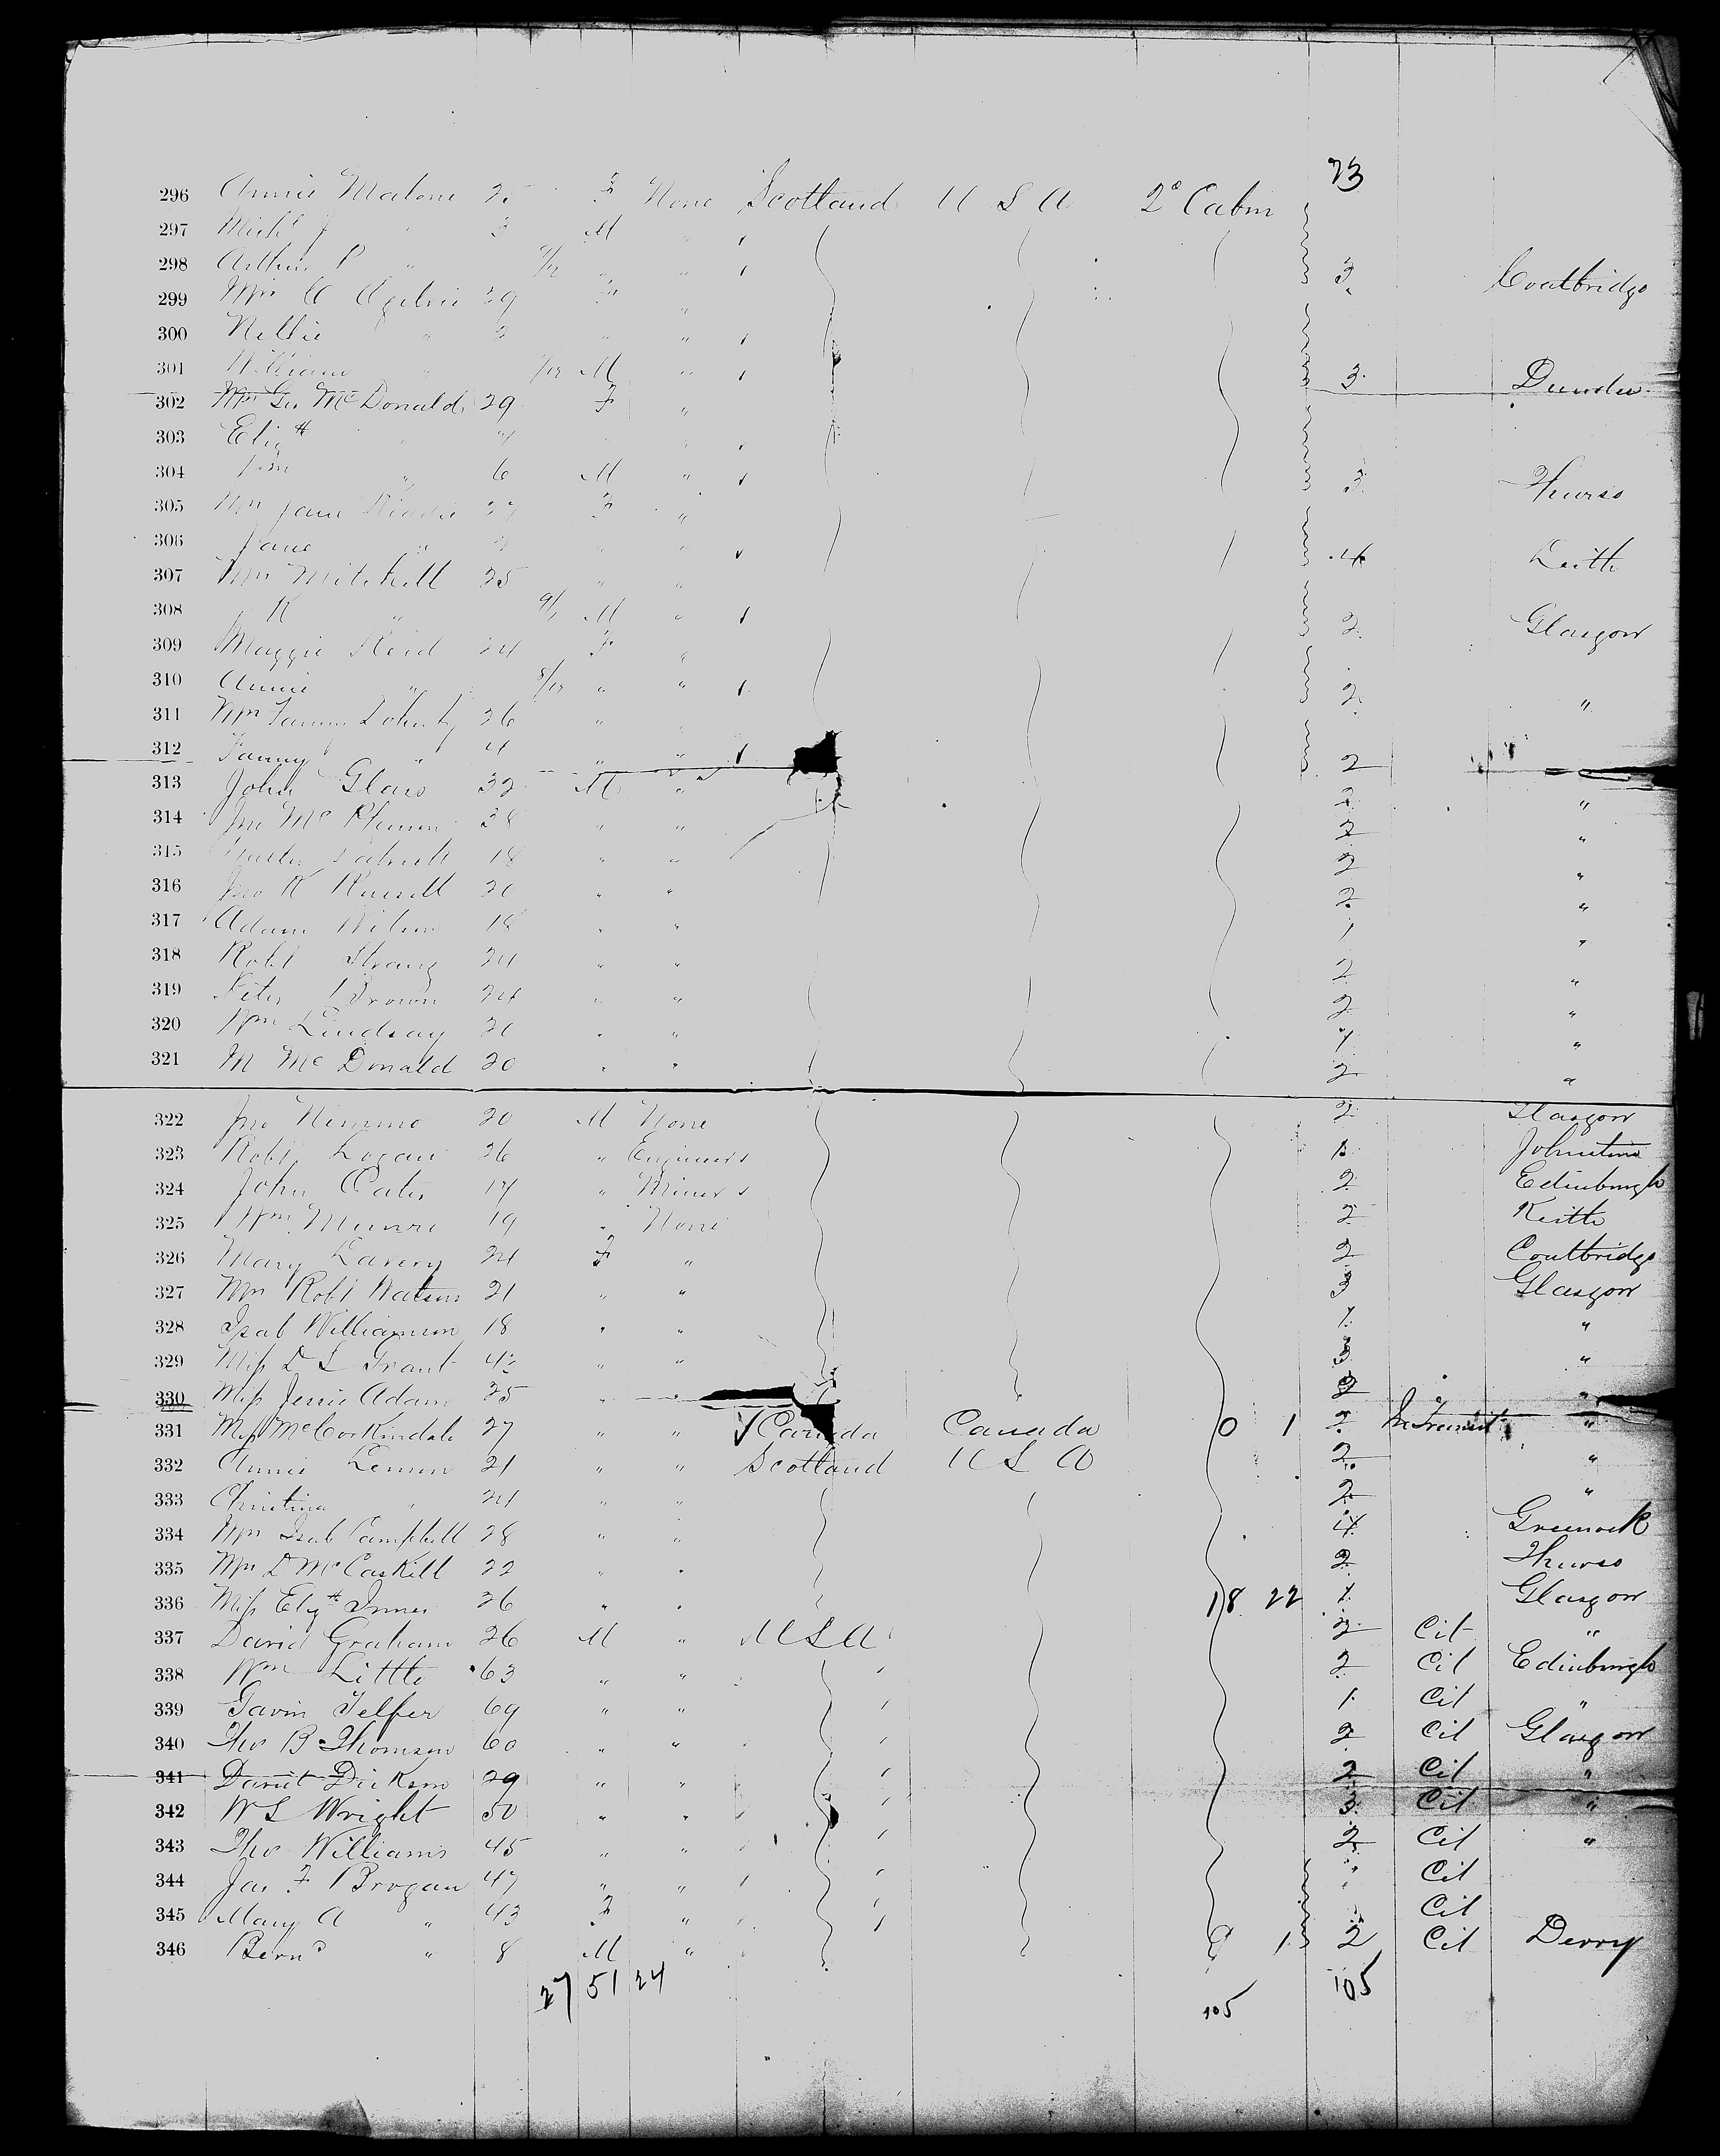 23
296 Annie Malone 25 F None Scotland U S A 2d Cabin
297 Michl J " 3 M "
298 Arthur P " /12 " " 3 Coatbridge
299 Mrs A Ogilvie 29 F "
300 Nellie " 3 " "
301 William " /12 M " 3 Dundee
302 Mrs Geo McDonald 29 F "
303 Elizth "
304 Jno " 6 M " 3 Thurso
305 Mrs Jane F "
306 Jane " " " 4 Leith
307 Mrs Mitchell 25 " "
308 R " 9/ M " 2 Glasgow
309 Maggie Reid 24 F "
310 Annie " 8/12 " " 2 "
311 Mrs Fanny Doherty 26 "
312 Fanny " 4 " " 2
313 John Glass 32 M " 2 "
314 Jno Mc 38 " " 2 "
315 Patrick 18 " " 2 "
316 Jno R Russell 20 " " 2 "
317 Adam Wilson 18 " " 1 "
318 Robt Strang 24 " " 2 "
319 Peter Brown 24 " " 2 "
320 Wm Lindsay 20 " " 1 "
321 M McDonald 20 " " 2 "
322 Jno Nimmo 20 M None 2 Glasgow
323 Robt Logan 26 " Engineers 1 Johnstone
324 John Oates 17 " Miners 2 Edinburgh
325 Wm Munro 19 " None 2 Keith
326 Mary Lavery 24 F " 2 Coatbridge
327 Mrs Robt Watson 21 " " 3 Glasgow
328 Isab Williamson 18 " " 1 "
329 Miss D L Grant 42 " " 3 "
330 Miss Jessie Adam 25 " " 2 "
331 McCorkindale 27 " " Canada Canada 0 1 2 In Transit "
332 Annie Lennon 21 " " Scotland U S A 2 "
333 Christina " 24 " " 2 "
334 Mrs Isab Campbell 28 " " 4 Greenock
335 Mrs D McCaskill 22 " " 2 Thurso
336 Miss Elizth Innes 26 " " 18 22 1 Glasgow
337 David Graham 26 M " U S A 2 Cit "
338 Wm Little 63 " " 2 Cit Edinburgh
339 Gavin Telfer 69 " " 1 Cit "
340 Thos B Thomson 60 " " 2 Cit Glasgow
341 David Dickson 29 " " 2 Cit "
342 W S Wright 50 " " 3 Cit "
343 Thos Williams 45 " " 2 Cit "
344 Jas F Brogan 47 " " Cit
345 Mary A " 43 F " Cit
346 Bernd " 8 M " 1 2 Cit Derry
27 51 24 105 105